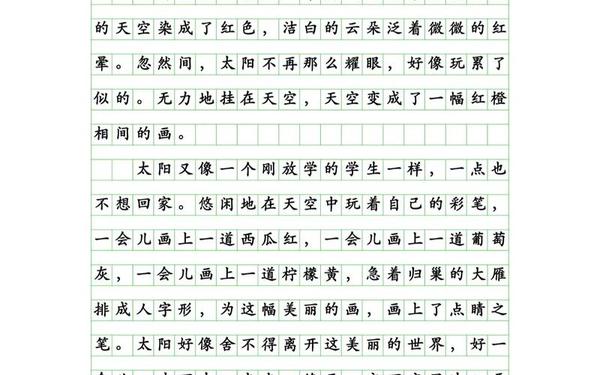 的天空染成了红色，洁白的云朵泛着微微的红
晕。忽然间，太阳不再那么耀眼，好像玩累了
似的。无力地挂在天空，天空变成了一幅红橙
相间的画。
太阳又像一个刚放学的学生一样，一点也
不想回家。悠闲地在天空中玩着自己的彩笔，
一会儿画上一道西瓜红，一会儿画上一道葡萄
灰，一会儿画上一道柠檬黄，急着归巢的大雁
排成人字形，为这幅美丽的画，画上了点睛之
笔。太阳好像舍不得离开这美丽的世界，好一